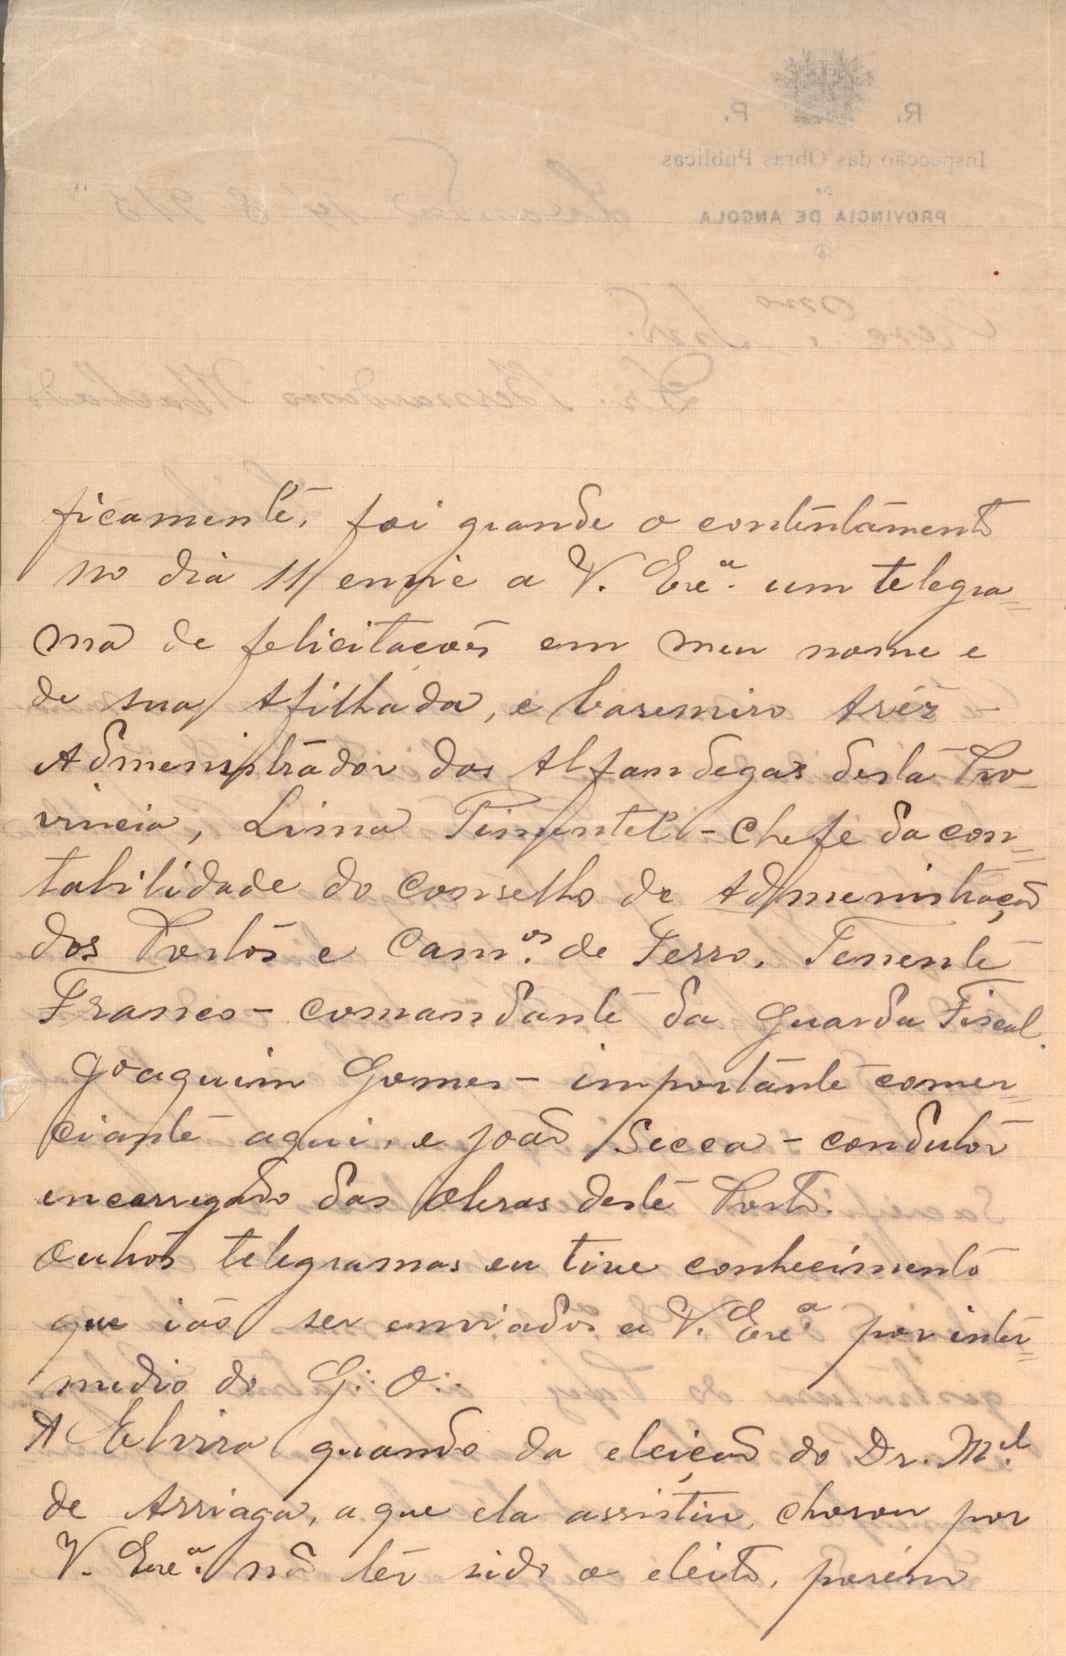 R. P.
Inspecção das Obras Publicas
DE
PROVINCIA DE ANGOLA
Loanda 14 8 915
Exmo Snr.
Dr. Bernardino Machado
ficamente, foi grande o contentamento
no dia 11 enviei a V. Exª. um telegra=
ma de felicitações em meu nome e
de sua Afilhada, e Casemiro Aréz -
Admenistrador das Alfandegas desta Pro-
vincia, Lima Pimentel - Chefe da con=
tabilidade do Conselho de Admenistração
dos Portos e Cam.os de Ferro. Tenente
Franco - comandante da Guarda Fiscal.
Joaquim Gomes - importante comer-
ciante aqui, e João Secca - condutor
encarregado das Obras deste Porto.
Outros telegramas eu tive conhecimento
que ião ser enviados a V. Exª. por inter=
medio do G∴ O∴
A Elvira quando da eleição do Dr. M.el
de Arriaga, a que ela assistiu, chorou por
V. Exª. não ter sido o eleito, porém